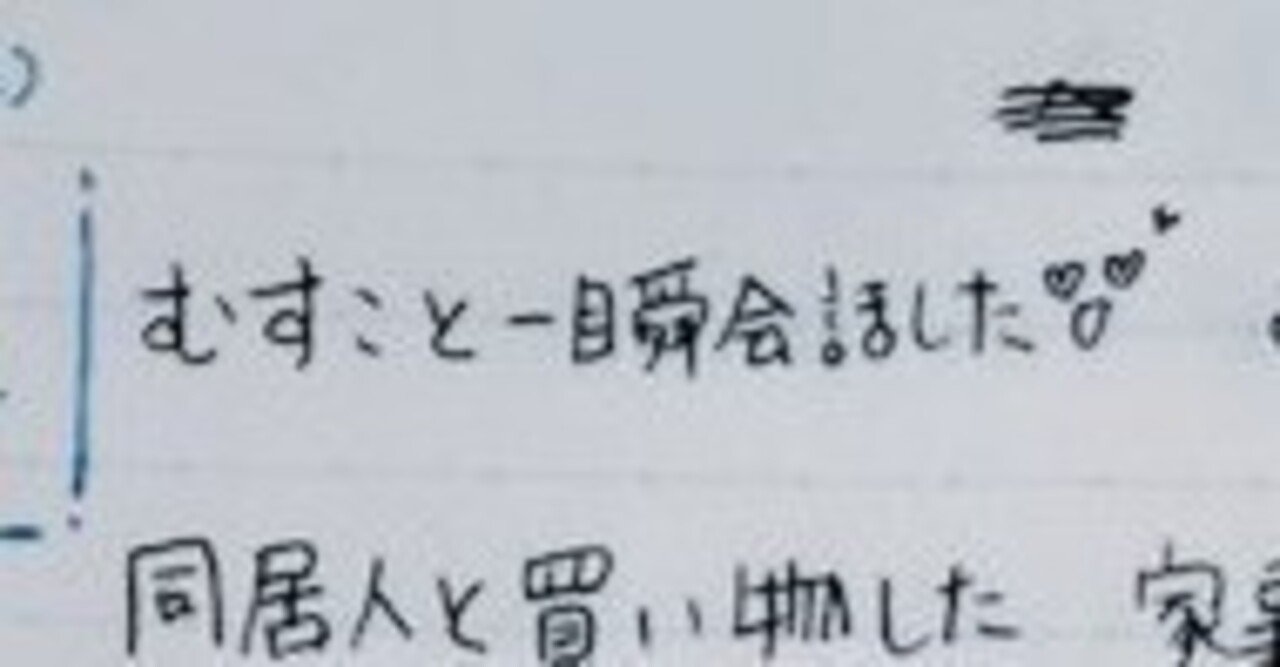 むすこと一瞬会話した
同居人と買い物した 家事